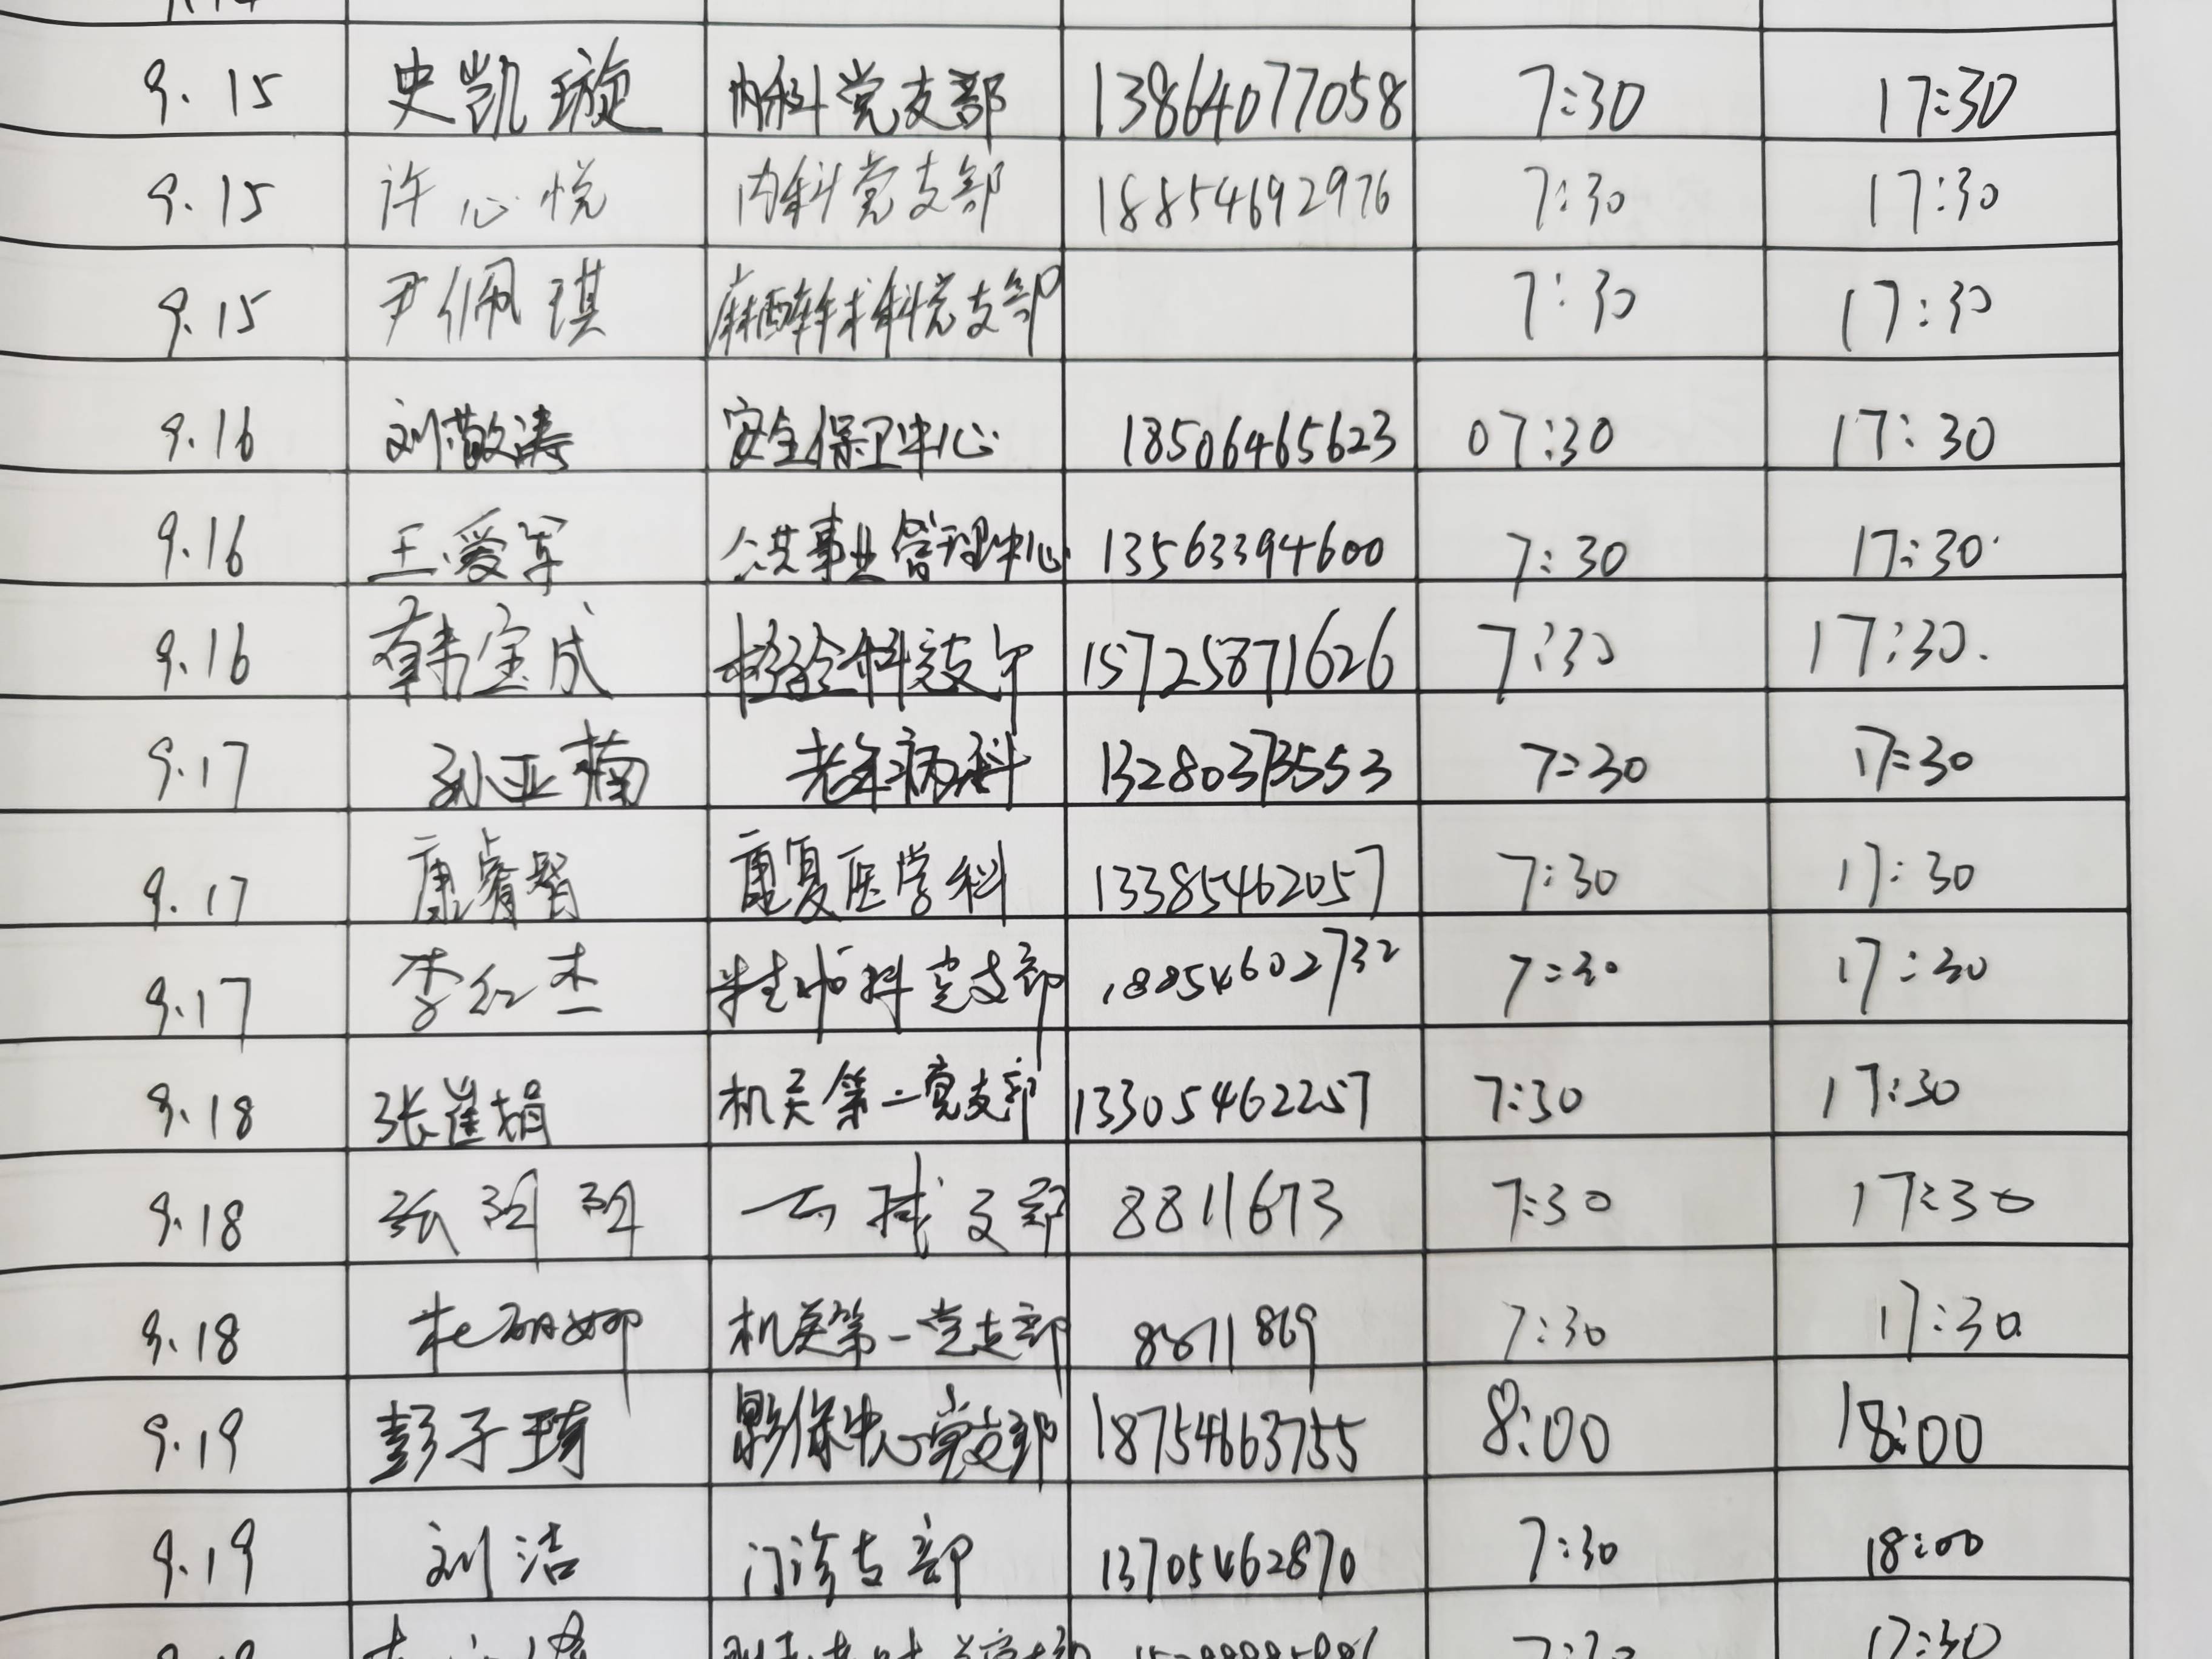 9.15 史凯璇 内科党支部 13864077058 7:30 17:30
9.15 许心悦 内科党支部 18854692976 7:30 17:30
9.15 尹佩琪 麻醉手术科党支部 7:30 17:30
9.16 刘敬涛 安全保卫中心 18506465623 07:30 17:30
9.16 王爱军 公共事业管理中心 13563394600 7:30 17:30
9.16 韩宝成 检验科支部 15725871626 7:30 17:30.
9.17 孙亚楠 老年病科 13280373553 7:30 17:30
9.17 康睿智 康复医学科 13385462057 7:30 17:30
9.17 李红杰 党支部 18854602732 7:30 17:30
9.18 张崔娟 机关第二党支部 13305462257 7:30 17:30
9.18 张 支部 8811673 7:30 17:30
9.18 杜丽娜 机关第一党支部 8811869 7:30 17:30
9.19 彭子琦 影像中心党支部 18754663755 8:00 18:00
9.19 刘洁 门诊支部 13705462870 7:30 18:00
7:30 17:30